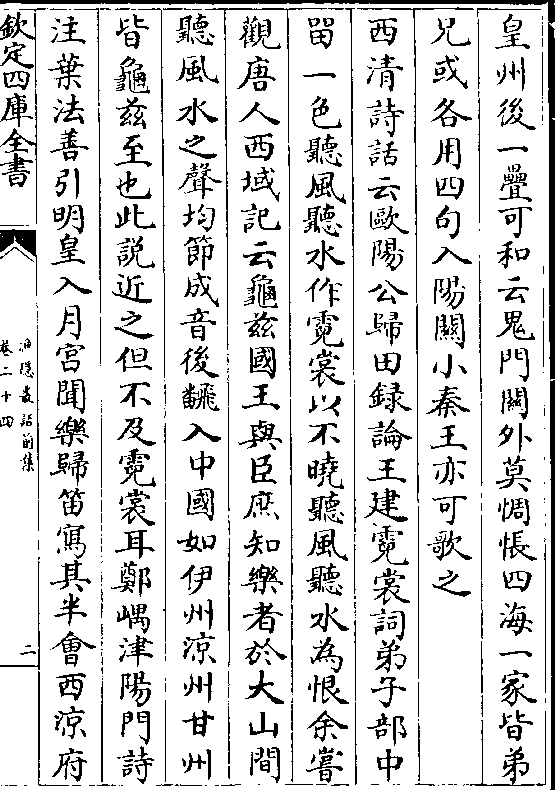 皇州後一疊可和云鬼門關外莫惆悵四海一家皆弟
兄或各用四句入陽關小秦王亦可歌之
西清詩話云歐陽公歸田録論王建霓裳詞弟子部中
留一色聽風聽水作霓裳以不曉聽風聽水為恨余嘗
觀唐人西域記云龜兹國王與臣庶知樂者於大山間
聽風水之聲均節成音後飜入中國如伊州凉州甘州
皆龜兹至也此説近之但不及霓裳耳鄭嵎津陽門詩
注葉法善引明皇入月宫聞樂歸笛寫其半會西凉府
欽定四庫全書
漁隱叢話前集
卷二十四
二